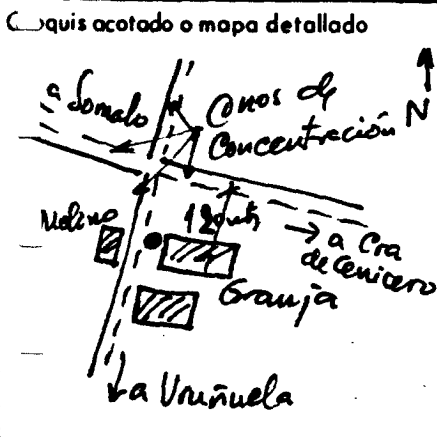 Croquis acotado o mapa detallado
a Somalo
Conos de
Concentración
N
Molino
120 mts
→ a Cra
de Cenicero
Granja
a Uruñuela